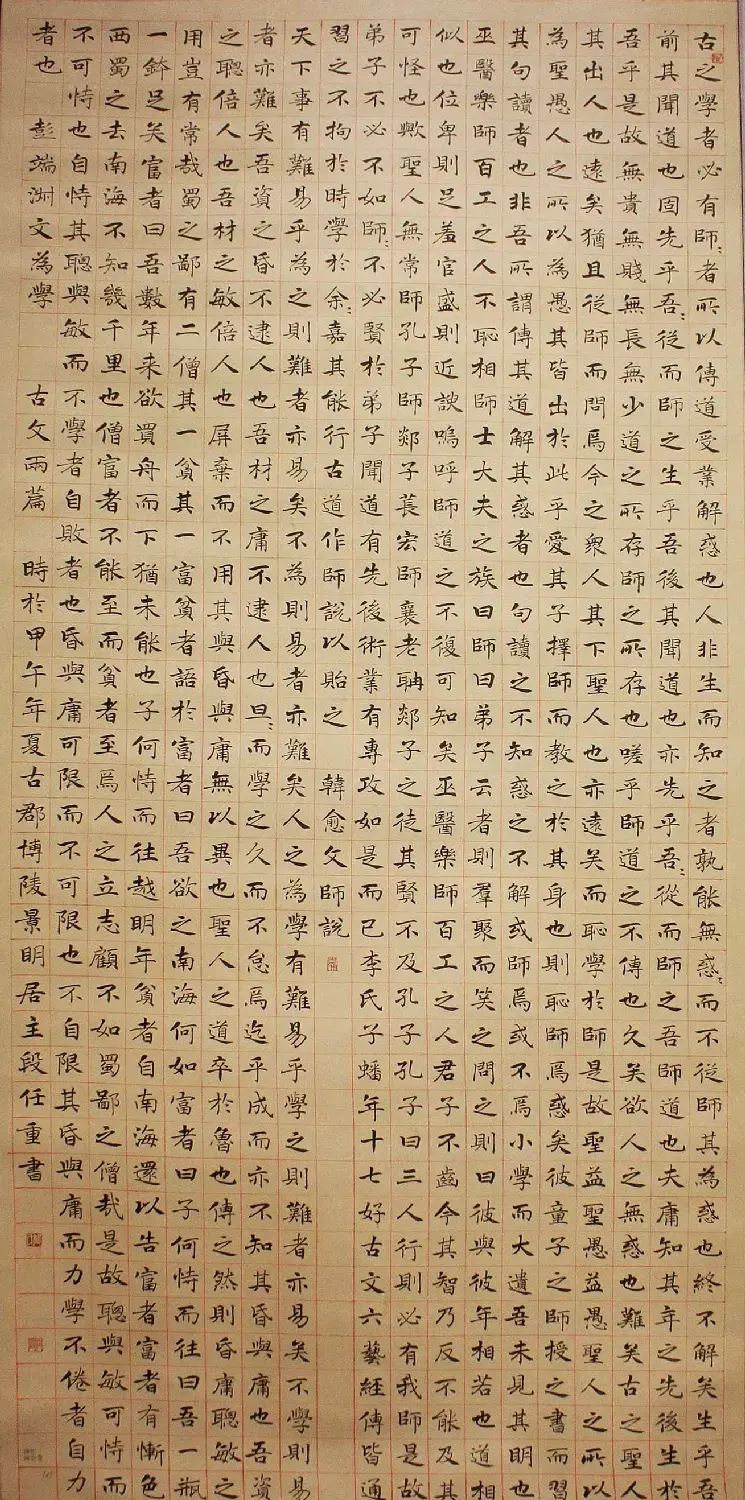 古之學者必有師:者所以傳道受業解惑也人非生而知之者孰能無惑:而不從師其為惑也終不解矣生乎吾
前其聞道也固先乎吾:從而師之生乎吾後其聞道也亦先乎吾:從而師之吾師道也夫庸知其年之先後生於
吾乎是故無貴無賤無長無少道之所存師之所存也嗟乎師道之不傳也久矣欲人之無惑也難矣古之聖人
其出人也遠矣猶且從師而問焉今之衆人其下聖人也亦遠矣而恥學於師是故聖益聖愚益愚聖人之所以
為聖愚人之所以為愚其皆出於此乎愛其子擇師而教之於其身也則恥師焉惑矣彼童子之師授之書而習
其句讀者也非吾所謂傳其道解其惑者也句讀之不知惑之不解或師焉或不焉小學而大遺吾未見其明也
巫醫樂師百工之人不恥相師士大夫之族曰師曰弟子云者則羣聚而笑之問之則曰彼與彼年相若也道相
似也位卑則足羞官盛則近諛嗚呼師道之不復可知矣巫醫樂師百工之人君子不齒今其智乃反不能及其
可怪也歟聖人無常師孔子師郯子萇宏師襄老聃郯子之徒其賢不及孔子孔子曰三人行則必有我師是故
弟子不必不如師:不必賢於弟子聞道有先後術業有專攻如是而已李氏子蟠年十七好古文六藝經傳皆通
習之不拘於時學於余:嘉其能行古道作師說以貽之 韓愈文師說
天下事有難易乎為之則難者亦易矣不為則易者亦難矣人之為學有難易乎學之則難者亦易矣不學則易
者亦難矣吾資之昏不逮人也吾材之庸不逮人也旦:而學之久而不怠焉迄乎成而亦不知其昏與庸也吾資
之聰倍人也吾材之敏倍人也屏棄而不用其與昏與庸無以異也聖人之道卒於魯也傳之然則昏庸聰敏之
用豈有常哉蜀之鄙有二僧其一貧其一富貧者語於富者曰吾欲之南海何如富者曰子何恃而往曰吾一瓶
一鉢足矣富者曰吾數年来欲買舟而下猶未能也子何恃而往越明年貧者自南海還以告富者富者有慚色
西蜀之去南海不知幾千里也僧富者不能至而貧者至焉人之立志顧不如蜀鄙之僧哉是故聰與敏可恃而
不可恃也自恃其聰與敏而不學者自敗者也昏與庸可限而不可限也不自限其昏與庸而力學不倦者自力
者也 彭端淑文為學 古文兩篇 時於甲午年夏古郡博陵景明居主段任重書